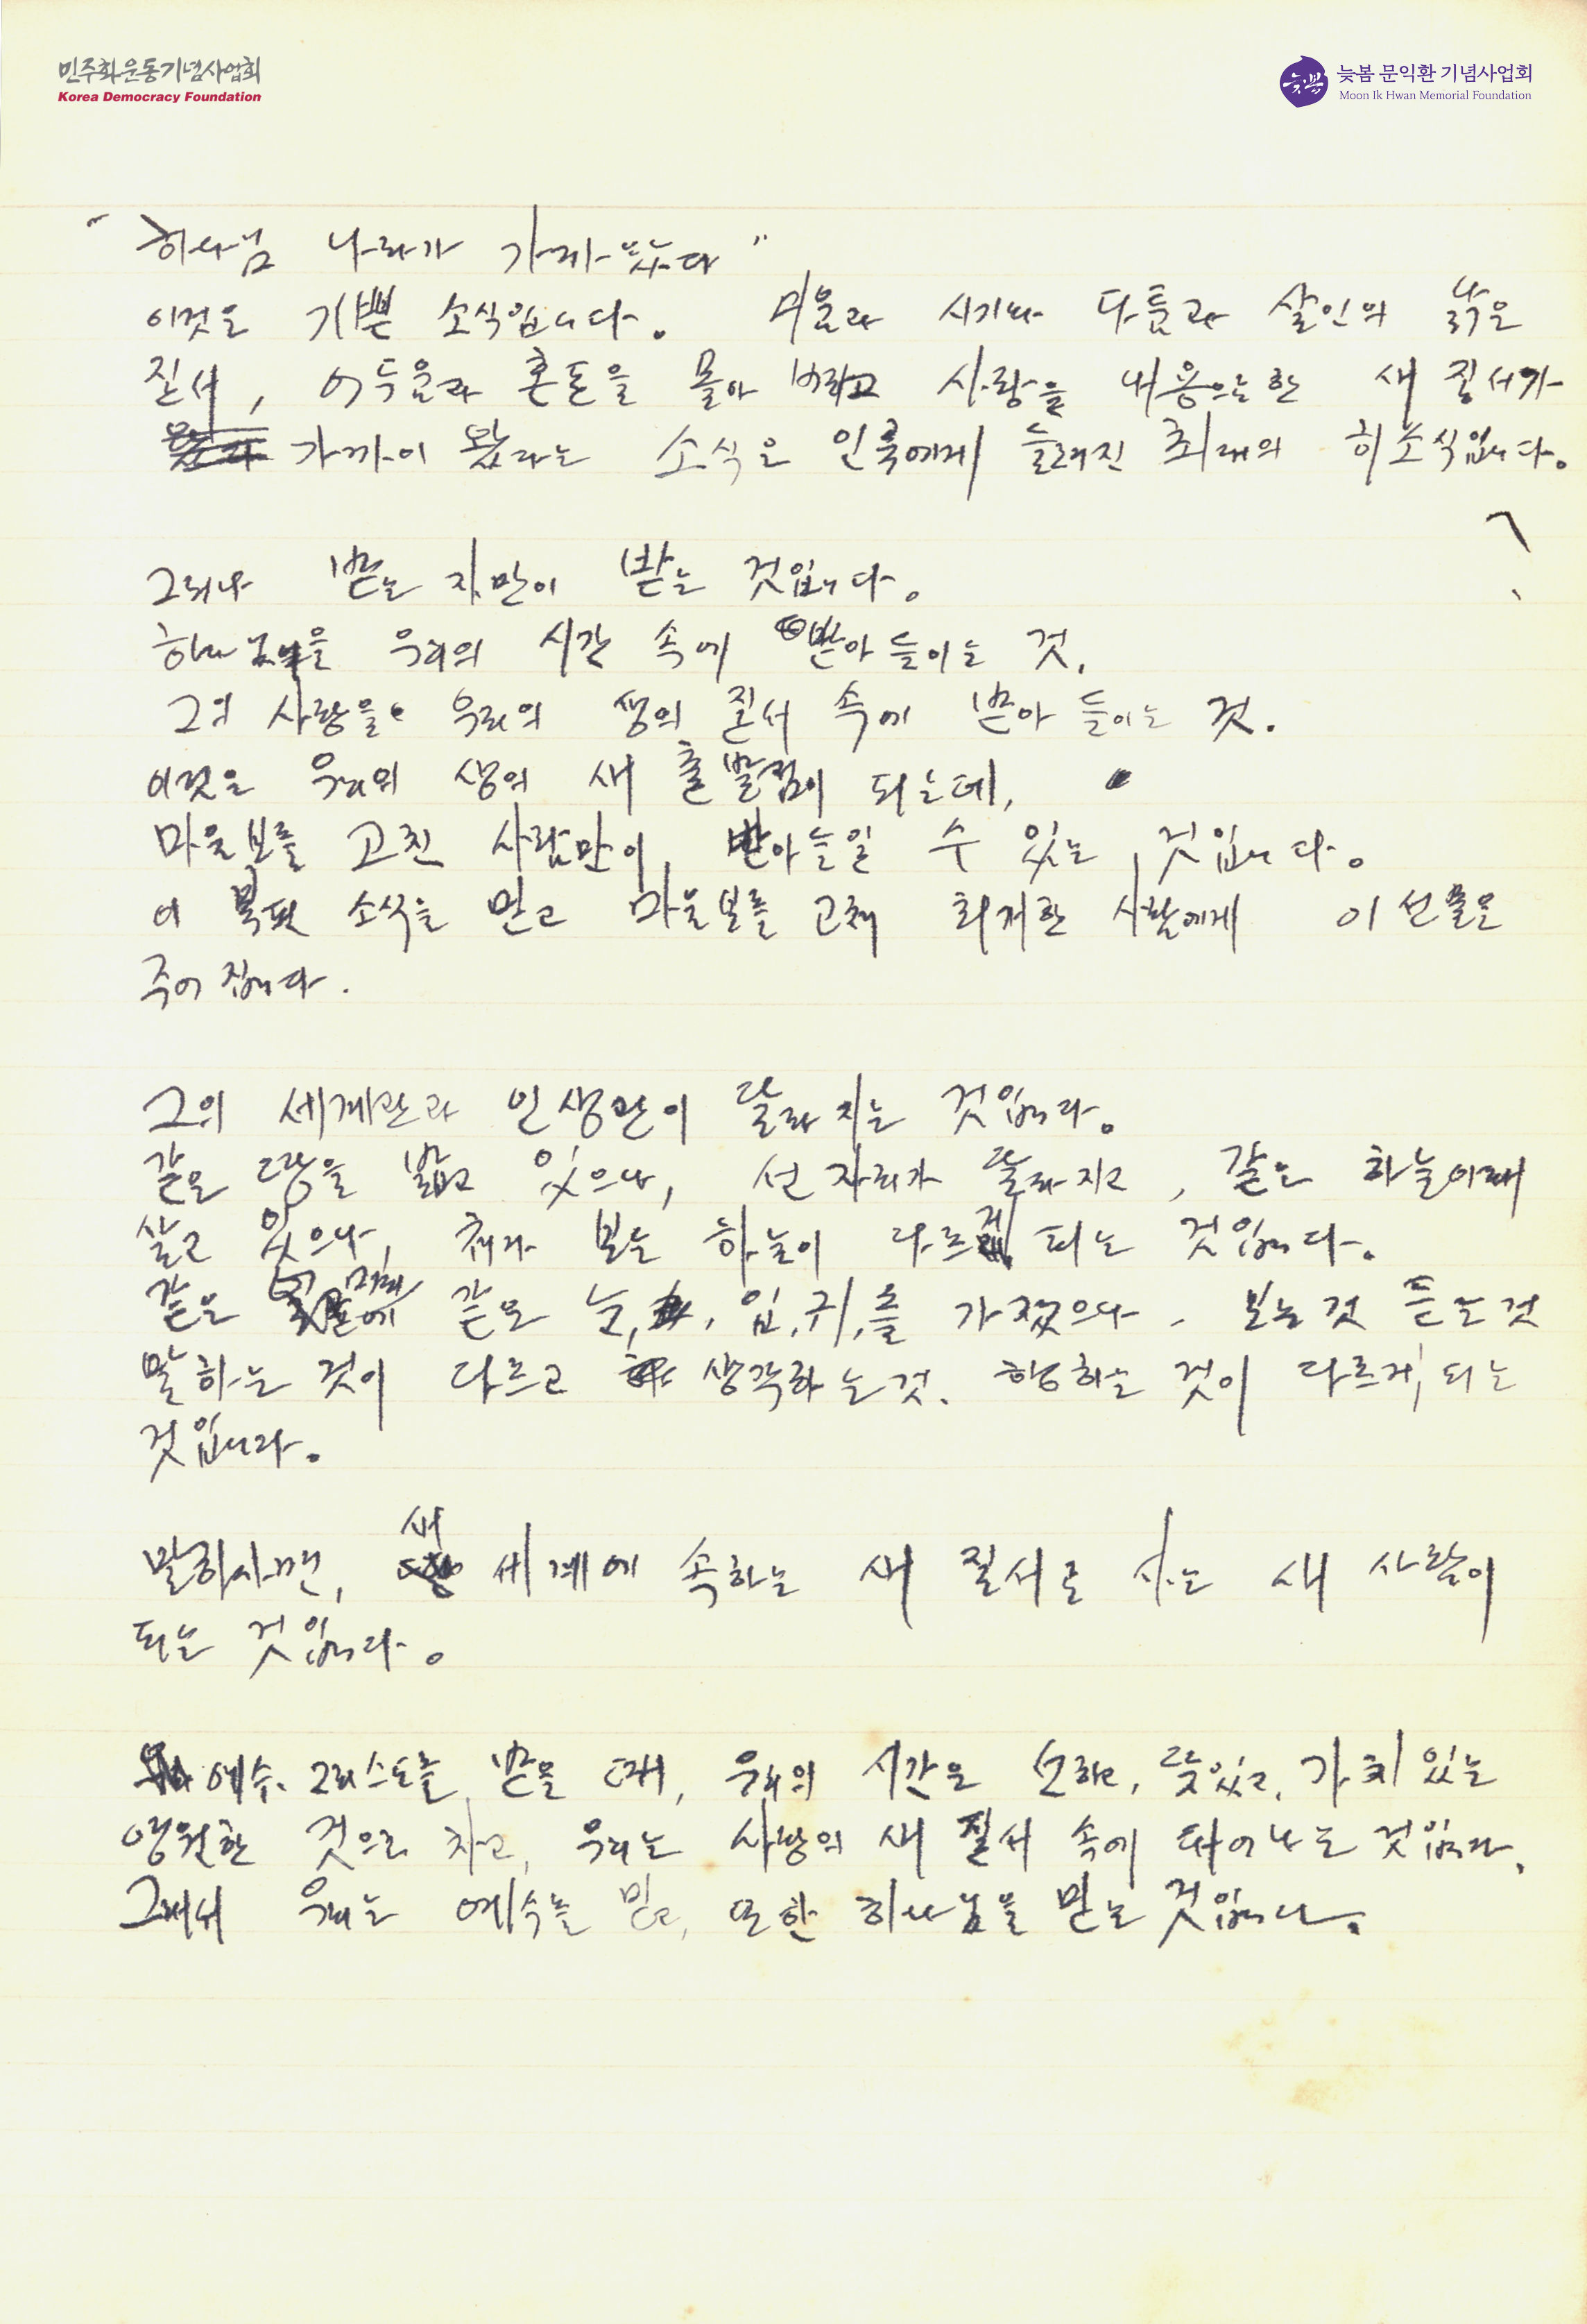 민주화운동기념사업회
Korea Democracy Foundation
늦봄
늦봄 문익환 기념사업회
Moon Ik Hwan Memorial Foundation
"하나님 나라가 가까왔다"
이것은 기쁜 소식입니다. 미움과 시기와 다툼과 살인의 낡은
질서, 어두움과 혼돈을 몰아 버리고 사랑을 내용으로한 새 질서가
가까이 왔다는 소식은 인류에게 들려진 최대의 희소식입니다.
그러나 받는 자만이 받는 것입니다.
하나님을 우리의 시간 속에 받아 들이는 것,
그의 사랑을 우리의 생의 질서 속에 받아 들이는 것.
이것은 우리의 생의 새 출발점이 되는데,
마음보를 고친 사람만이 받아들일 수 있는 것입니다.
이 복된 소식을 믿고 마음보를 고쳐 회개한 사람에게 이 선물은
주어 집니다.
그의 세계관과 인생관이 달라 지는 것입니다.
같은 땅을 밟고 있으나, 선 자리가 달라지고, 같은 하늘아래
살고 있으나, 쳐다 보는 하늘이 다르게 되는 것입니다.
같은 같은 눈, 입, 귀,를 가졌으나, 보는 것 듣는 것
말하는 것이 다르고 생각하는 것, 행하는 것이 다르게 되는
것입니다.
말하자면, 새 세계에 속하는 새 질서로 사는 새 사람이
되는 것입니다.
예수 그리스도를 받을 때, 우리의 시간은 선하고, 뜻있고, 가치 있는
영원한 것으로 차고, 우리는 사랑의 새 질서 속에 태어나는 것입니다.
그래서 우리는 예수를 믿고, 또한 하나님을 믿는 것입니다.